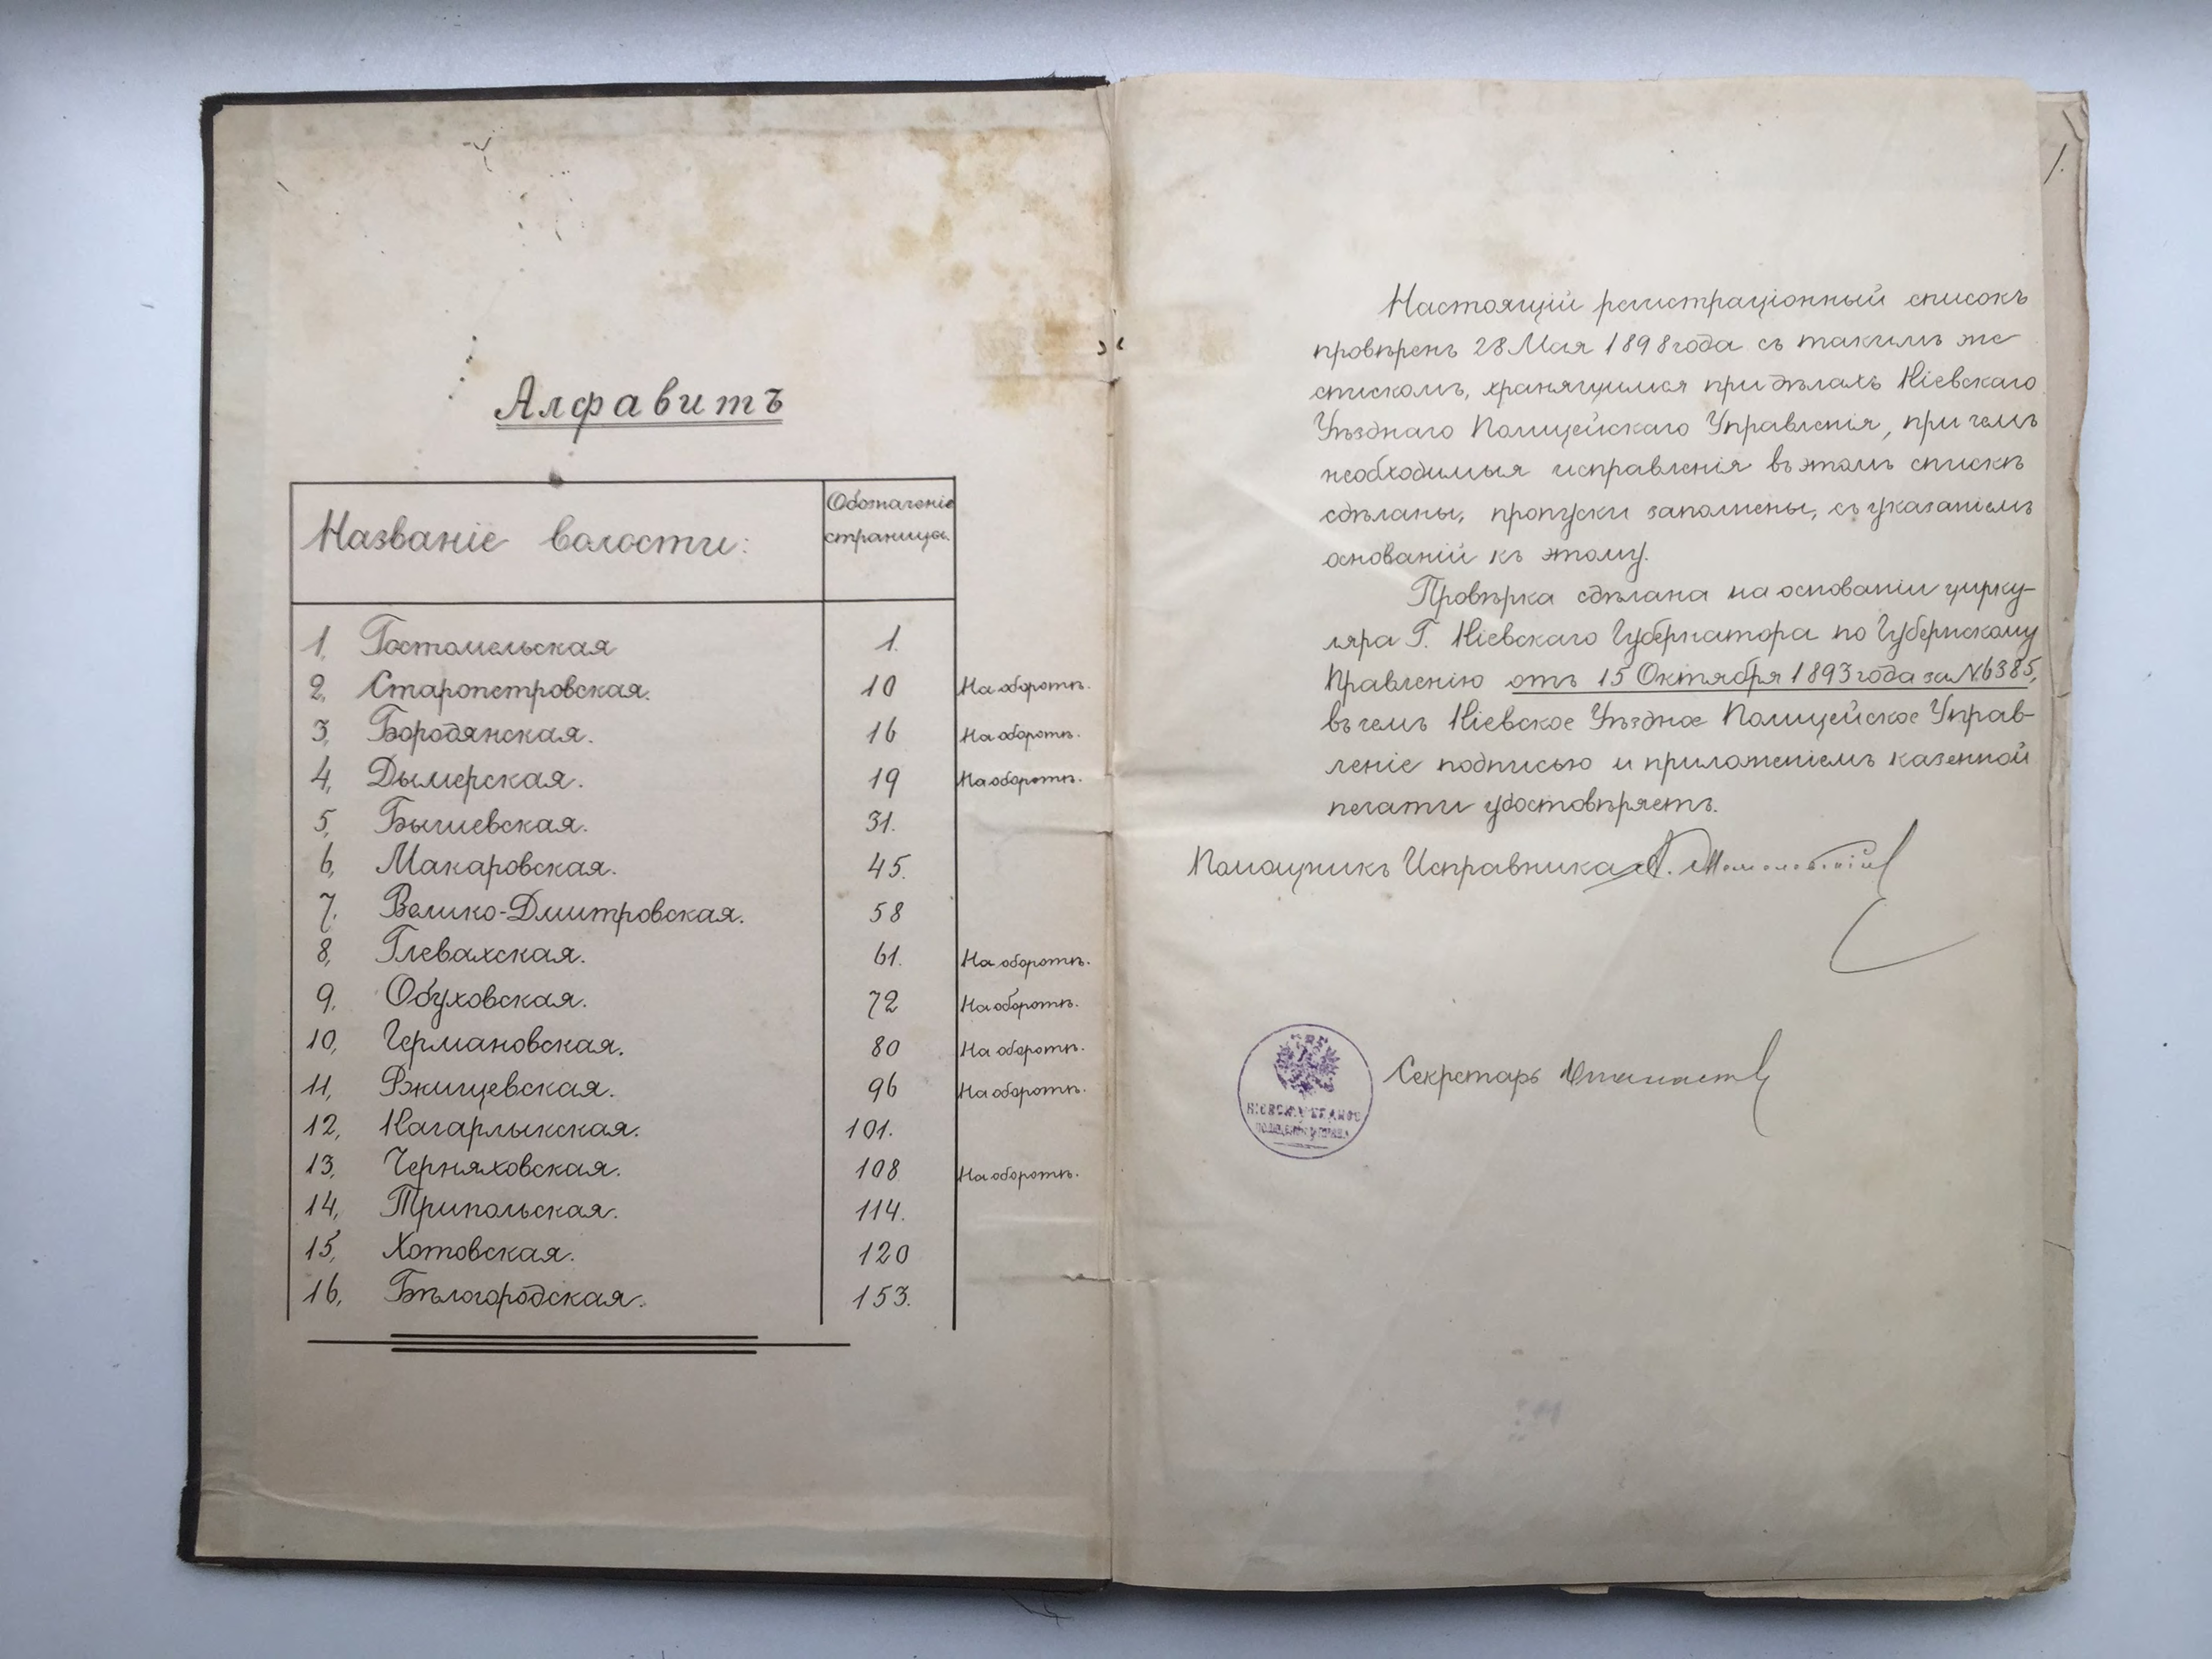 Алфавитъ
Названіе волости:
Обозначеніе
страницы.
1, Гостомельская 1.
2, Старопетровская. 10 На оборотѣ.
3, Бородянская. 16 На оборотѣ.
4, Дымерская. 19 На оборотѣ.
5, Бышевская. 31.
6, Макаровская. 45.
7, Велико-Дмитровская. 58
8, Глевахская. 61. На оборотѣ.
9, Обуховская. 72 На оборотѣ.
10, Германовская. 80 На оборотѣ.
11, Ржищевская. 96 На оборотѣ.
12, Кагарлыкская. 101.
13, Черняховская. 108 На оборотѣ.
14, Трипольская. 114.
15, Хотовская. 120
16, Бѣлогородская. 153.
1.
Настоящій регистраціонный списокъ
провѣренъ 28 Мая 1898 года съ такимъ же
спискомъ, хранящимся при дѣлахъ Кіевскаго
Уѣзднаго Полицейскаго Управленія, при чемъ
необходимыя исправленія въ этомъ спискѣ
сдѣланы, пропуски заполнены, съ указаніемъ
основаній къ этому.
Провѣрка сдѣлана на основаніи цирку-
ляра Г. Кіевскаго Губернатора по Губернскому
Правленію отъ 15 Октября 1893 года за № 6385,
въ чемъ Кіевское Уѣздное Полицейское Управ-
леніе подписью и приложеніемъ казенной
печати удостовѣряетъ.
Помощникъ Исправника
Секретарь